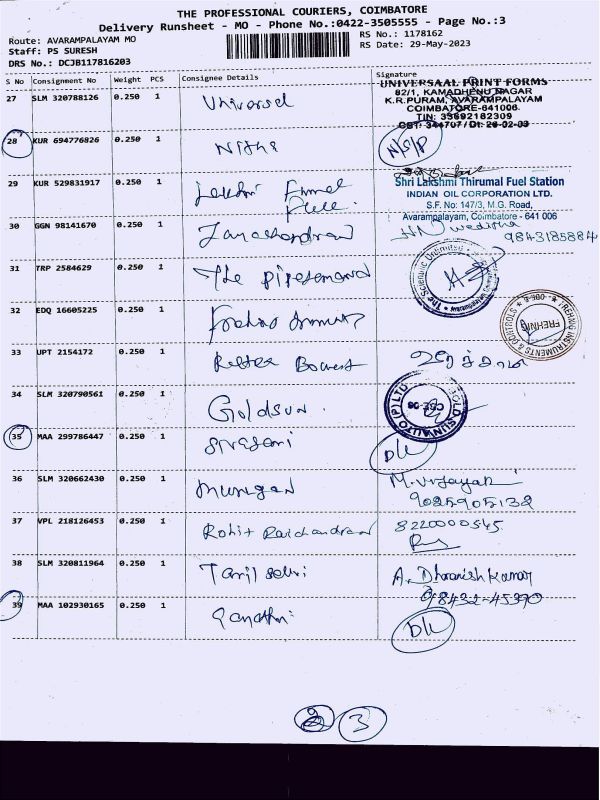 THE PROFESSIONAL COURIERS, COIMBATORE
Delivery Runsheet - MO - Phone No.:0422-3505555 - Page No.:3
Route: AVARAMPALAYAM MO
Staff: PS SURESH
DRS No.: DCJB117816203
RS No.: 1178162
RS Date: 29-May-2023
S No Consignment No Weight PCS Consignee Details Signature
27 SLM 320788126 0.250 1 Universal
UNIVERSAAL PRINT FORMS
82/1, KAMADHENU NAGAR
K.R.PURAM, AVARAMPALAYAM
COIMBATORE-641006
TIN: 33692182309
CST: 344707 / Dt: 26-02-03
28 KUR 694776826 0.250 1 Nitha N/S/P
29 KUR 529831917 0.250 1 Lakshmi
Shri Lakshmi Thirumal Fuel Station
INDIAN OIL CORPORATION LTD.
S.F. No: 147/3, M.G. Road,
Avarampalayam, Coimbatore - 641 006
30 GGN 98141670 0.250 1
9843185884
31 TRP 2584629 0.250 1 The
The Scientific
32 EDQ 16605225 0.250 1
FREHNIG INSTRUMENTS & CONTROLS
FREHNIG
33 UPT 2154172 0.250 1
34 SLM 320790561 0.250 1 Goldsun.
GOLD SUN AUTO (P) LTD
CBE-06
35 MAA 299786447 0.250 1 DL
36 SLM 320662430 0.250 1 Murugan M. Vijayan
9025905132
37 VPL 218126453 0.250 1 Rohit Raichandran 8220000545
38 SLM 320811964 0.250 1 Tamil selvi A. Dharanish kumar
98432-45390
39 MAA 102930165 0.250 1 Gayathri DL
2 3